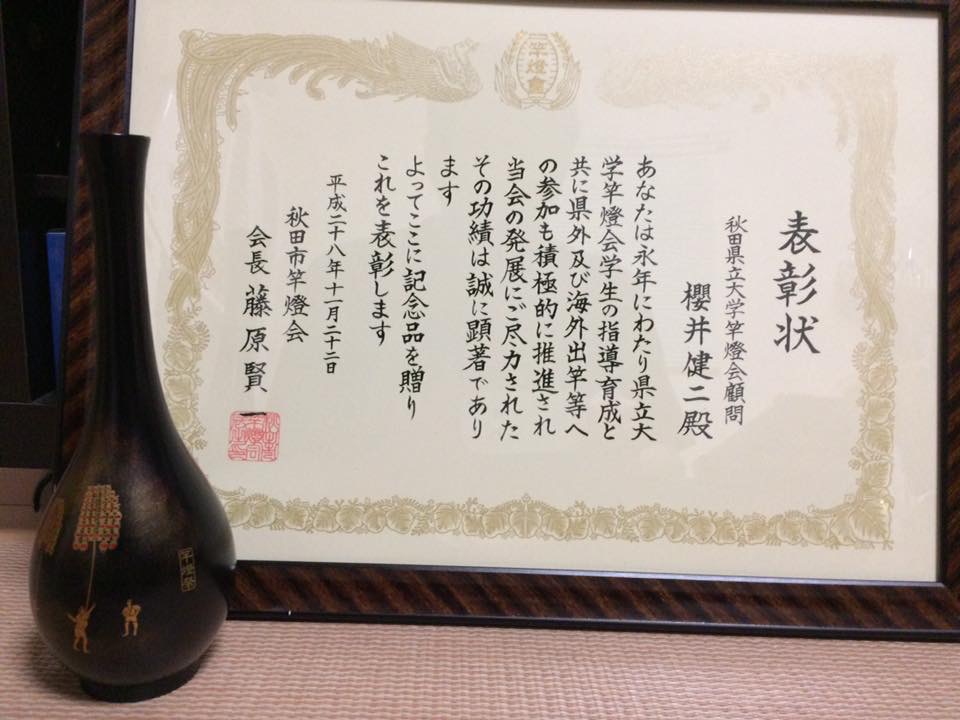 竿燈會
表彰状
秋田県立大学竿燈会顧問
櫻井健二殿
あなたは永年にわたり県立大
学竿燈会学生の指導育成と
共に県外及び海外出竿等へ
の参加も積極的に推進され
当会の発展にご尽力された
その功績は誠に顕著であり
ます
よってここに記念品を贈り
これを表彰します
平成二十八年十一月二十二日
秋田市竿燈会
会長 藤原賢一
竿燈祭